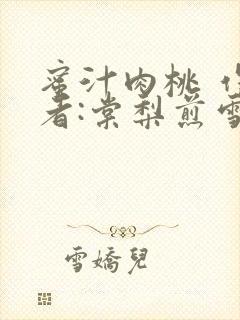 蜜汁肉桃 
者:棠梨煎雪
雪嬌兒